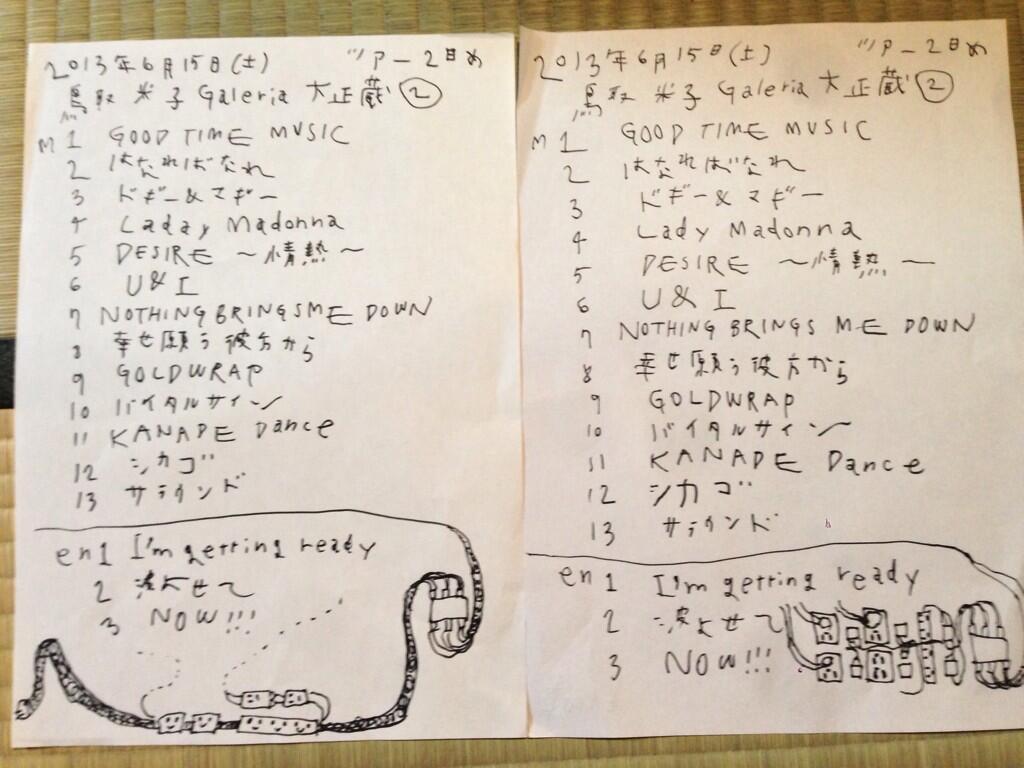 2013年6月15日(土) ツアー2日め
鳥取 米子 Galeria 大正蔵 ②
M 1 GOOD TIME MUSIC
2 はなればなれ
3 ドギー&マギー
4 Laday Madonna
5 DESIRE ～情熱～
6 U&I
7 NOTHING BRINGS ME DOWN
8 幸せ願う彼方から
9 GOLDWRAP
10 バイタルサイン
11 KANADE Dance
12 シカゴ
13 サラウンド
en 1 I'm getting ready
2 波よせて
3 NOW!!!
2013年6月15日(土) ツアー2日め
鳥取 米子 Galeria 大正蔵 ②
M 1 GOOD TIME MUSIC
2 はなればなれ
3 ドギー&マギー
4 Lady Madonna
5 DESIRE ～情熱～
6 U&I
7 NOTHING BRINGS ME DOWN
8 幸せ願う彼方から
9 GOLDWRAP
10 バイタルサイン
11 KANADE Dance
12 シカゴ
13 サラウンド
en 1 I'm getting ready
2 波よせて
3 NOW!!!